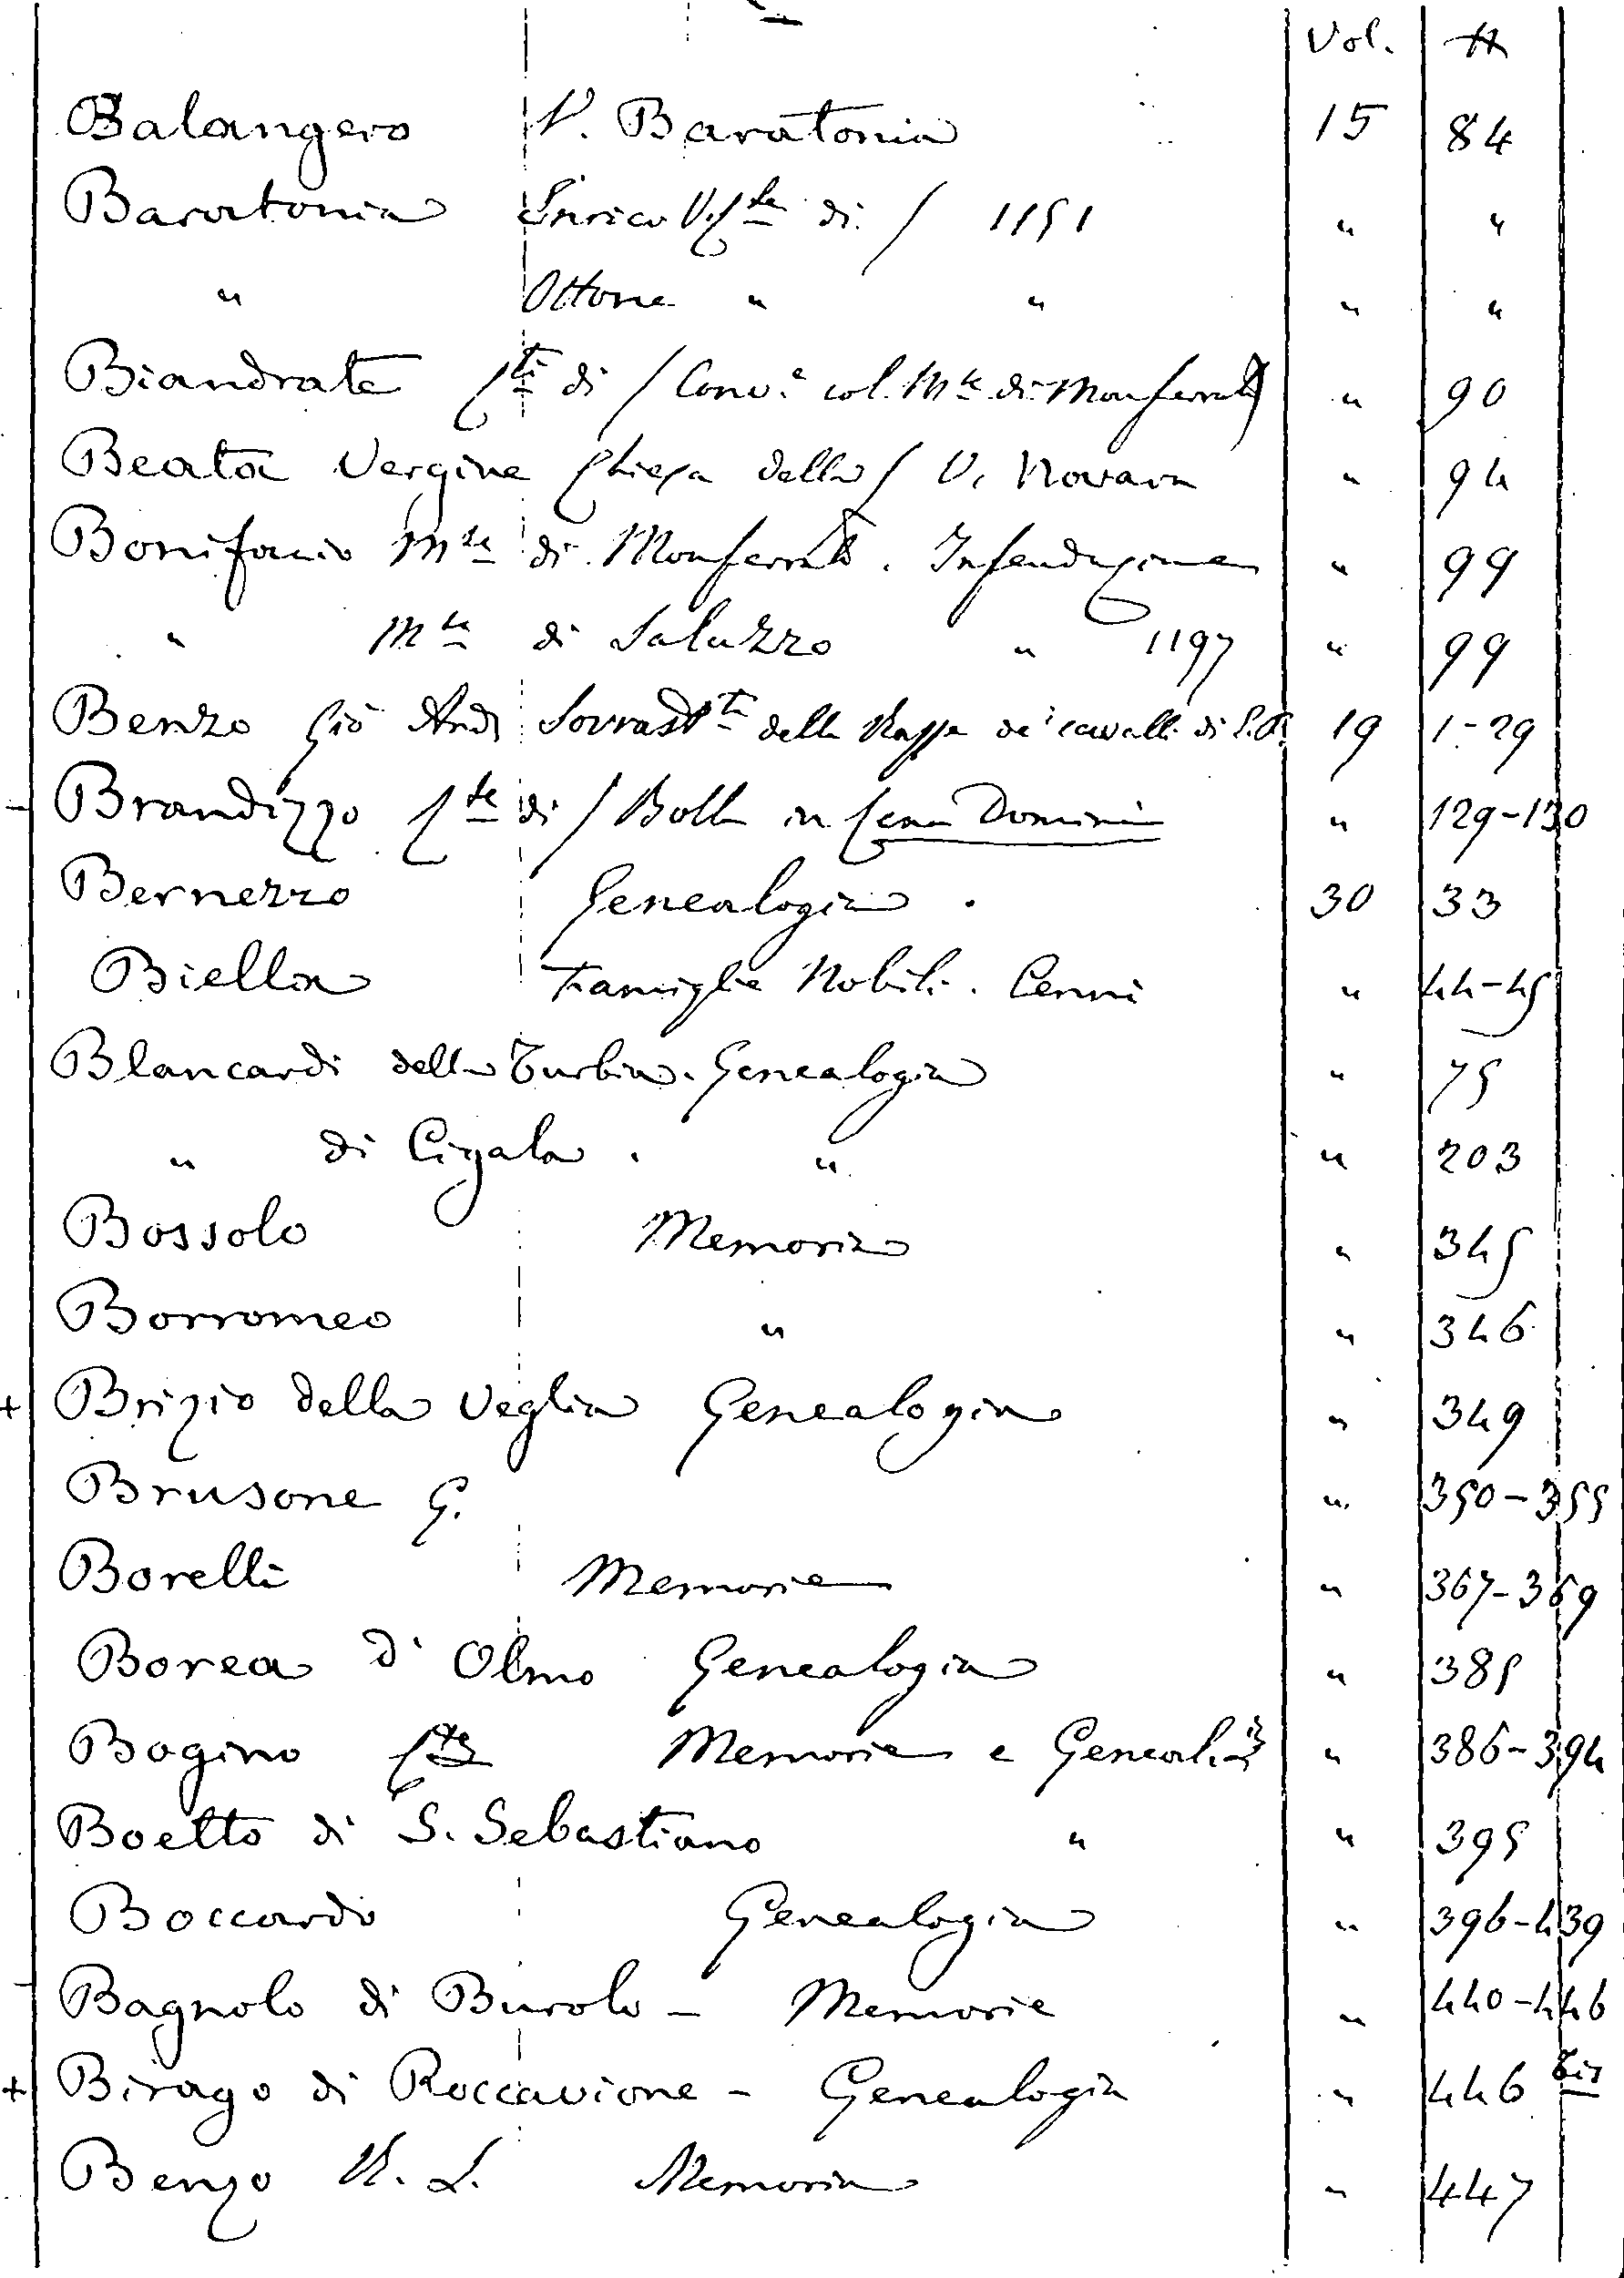 Vol. #
Balangero V. Baratonia 15 84
Baratonia Enrico V.Cte di / 1151 " "
" Ottone " " " "
Biandrate Cti di / Conv.e col Mse di Monferrato " 90
Beata Vergine Chiesa della / V. Novara " 94
Bonifacio Mse di Monferrato . Infeudazione " 99
" Mse di Saluzzo " 1197 " 99
Benzo Gio And Sovrastte delle Razze de' cavalli di S.A. 19 1-29
- Brandizzo Cte di / Bolla in Cena Domini " 129-130
Bernezzo Genealogia . 30 33
Biella Famiglie Nobili. Cenni " 44-45
Blancardi della Turbia. Genealogia " 75
" di Cigala . " " 203
Bossolo Memoria " 345
Borromeo " " 346
+ Brizio della Veglia Genealogia " 349
Brusone G. " 350-355
Borelli Memorie " 367-369
Borea d'Olmo Genealogia " 385
Bogino Cte Memorie e Geneal.ia " 386-394
Boetto di S. Sebastiano " " 395
Boccardo Genealogia " 396-439
- Bagnolo di Burolo - Memorie " 440-446
+ Birago di Roccavione - Genealogia " 446 bis
Benzo R. L. Memoria " 447